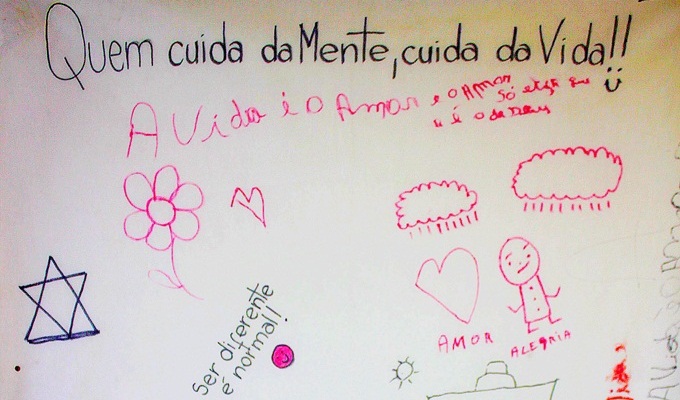 Quem cuida da Mente, cuida da Vida!!
A Vida é o Amor e o Amor
só
é o de Deus
Ser diferente
é normal!
AMOR
ALEGRIA